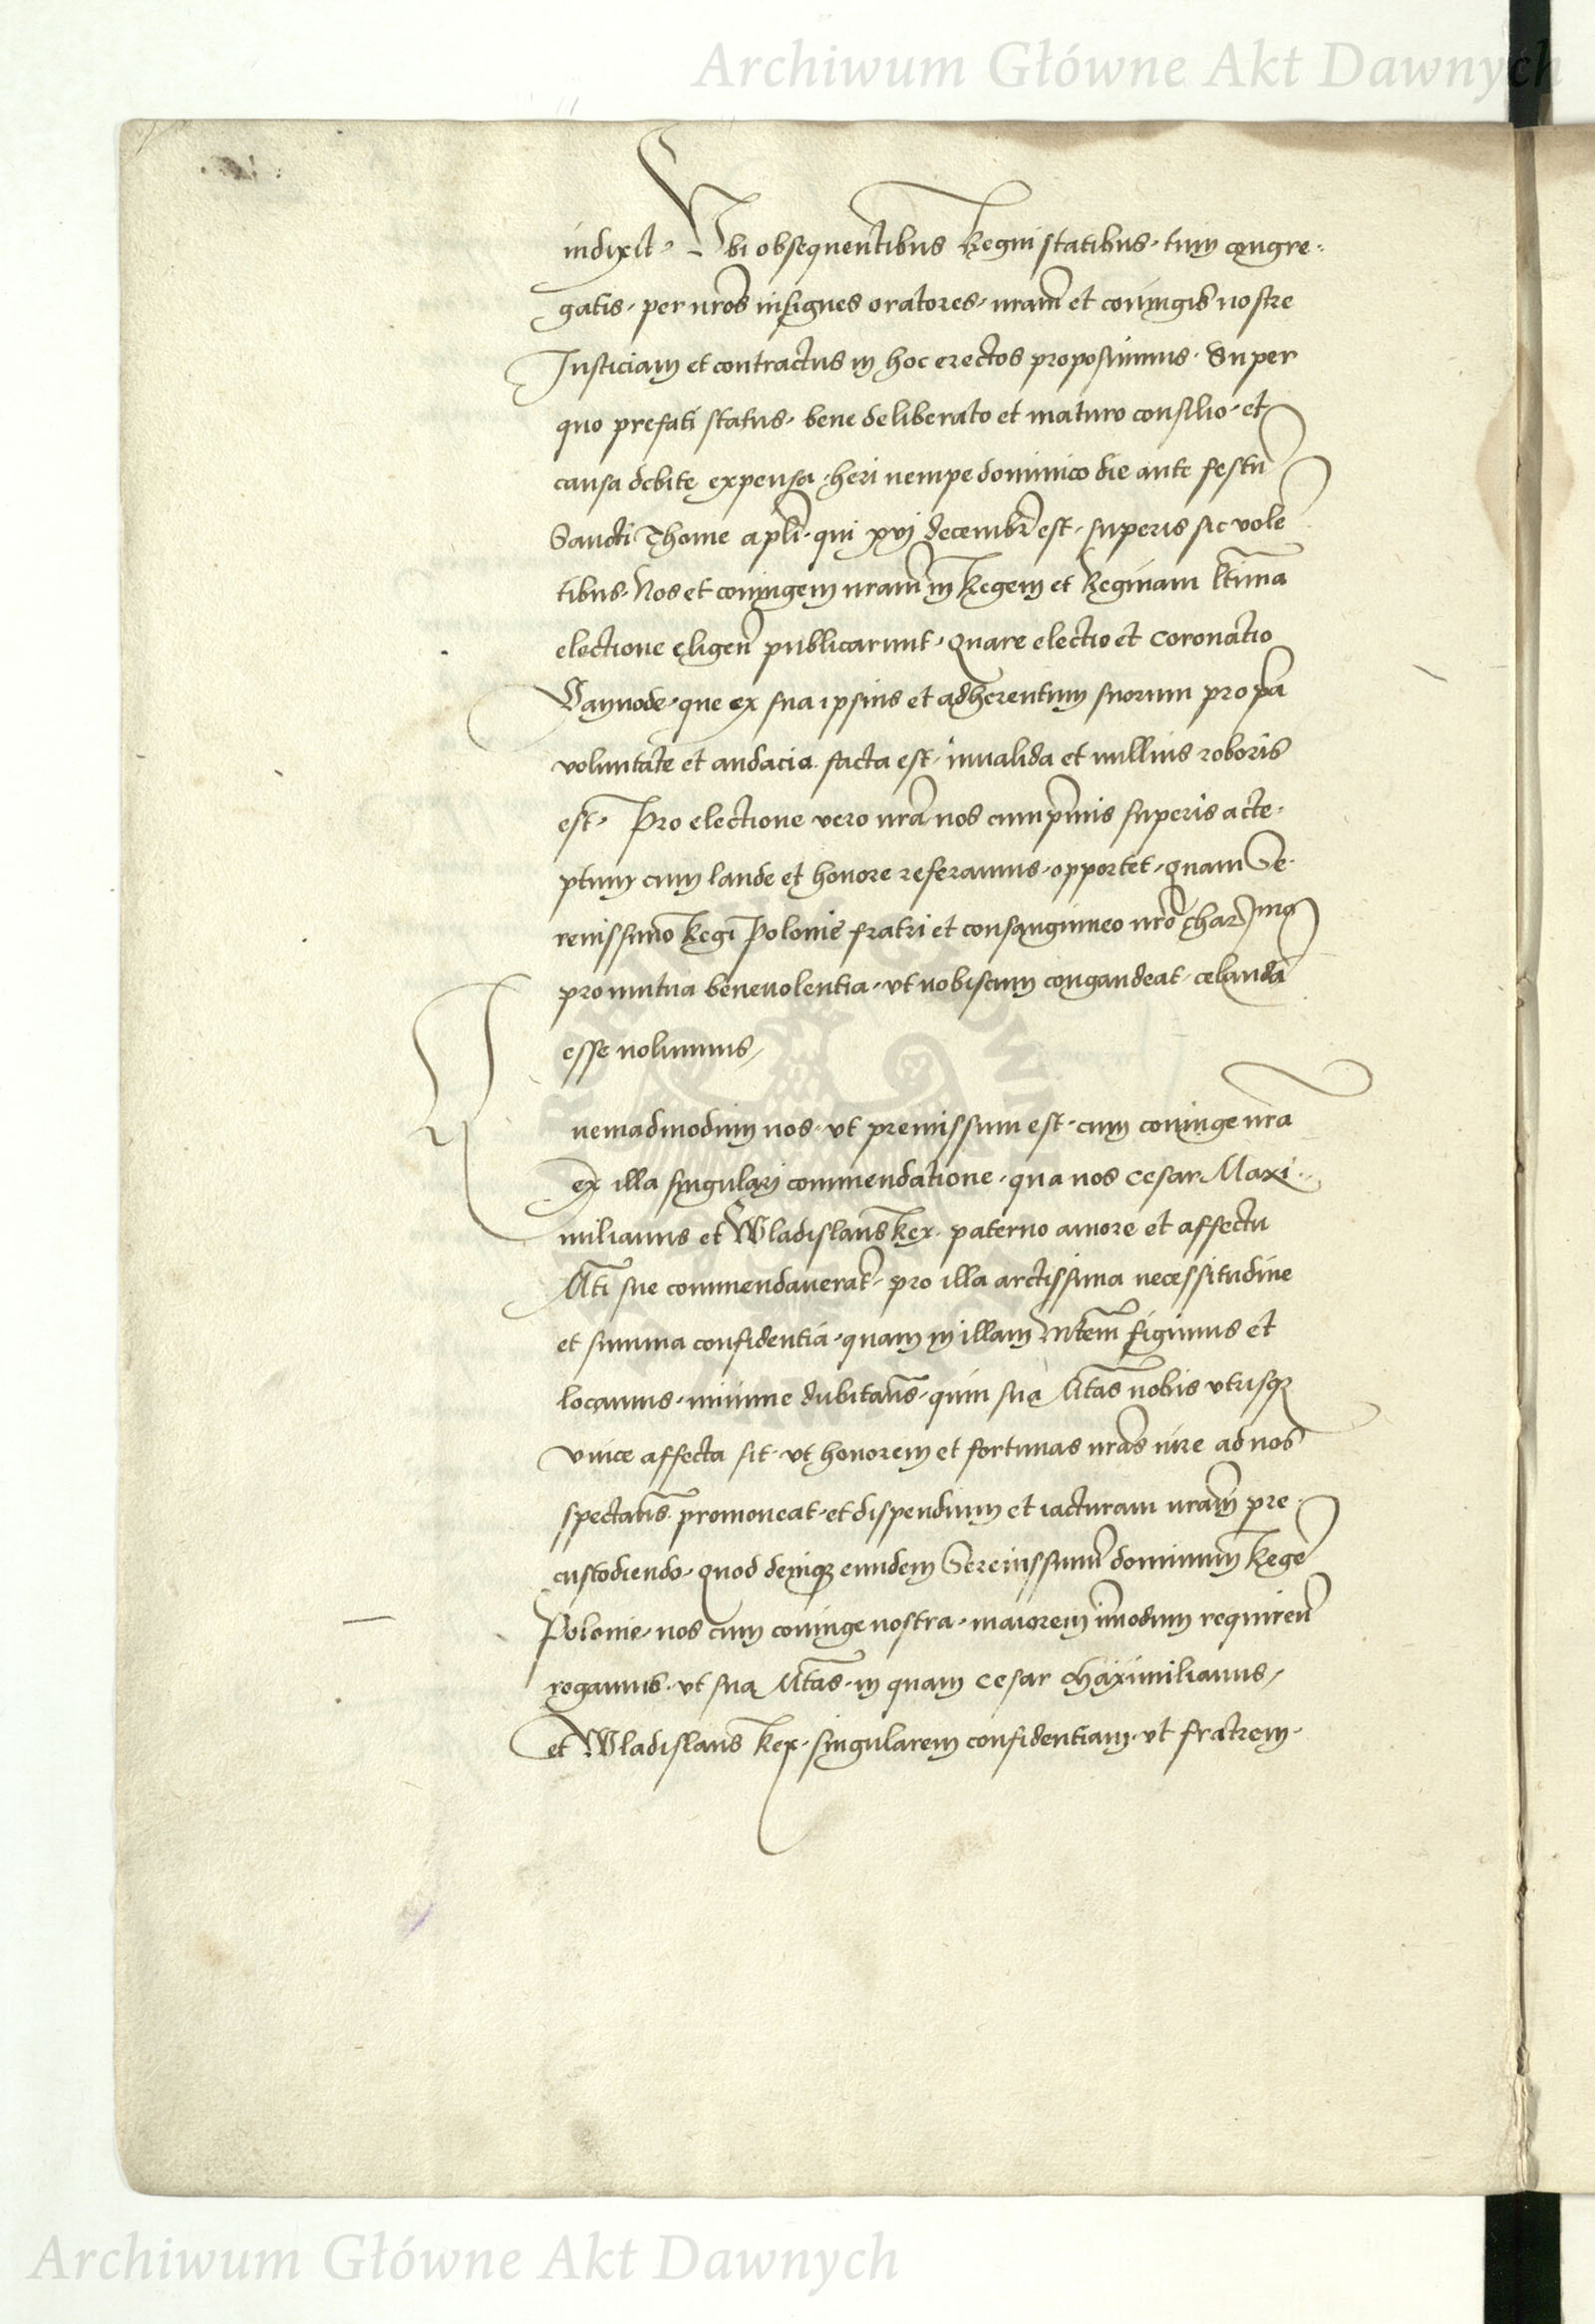 Archiwum Główne Akt Dawnych
indixit. Vbi obsequentibus Regni statibus. tum congre-
gatis. per nr̄os insignes oratores. nram̄ et coniugis nostre
Iusticiam et contractus in hoc erectos proposuimus. Super
quo prefati status. bene deliberato et maturo consilio. et
causa debite expensa. heri nempe dominico die ante festū
Sancti Thome apl̄i. qui xvj decembr̄ est. superis sic volē
tibus. Nos et coniugem nram̄ in Regem et Reginam l̄tima
electione eligen̄ publicarunt. Quare electio et coronatio
Vaynode. que ex sua ipsius et adherentum suorum propa
voluntate et audacia facta est. inualida et nullius roboris
est. Pro electione vero nra̅ nos cum pr̄mis superis acce-
ptum cum laude et honore referamus. opportet. Quam Se-
renissimo Regi Polonie fratri et consanguineo nr̄o char̄mo
pro mutua beneuolentia. vt nobiscum congaudeat. celandā
esse nolumus,
Quemadmodum nos. vt premissum est. cum coniuge nr̄a
ex illa singulari commendatione. qua nos Cesar Maxi-
milianus et Wladislaus Rex. paterno amore et affectu
Mti sue commendauerat̄. pro illa arctissima necessitudine
et summa confidentia. quam in illam Mtem̄ figimus et
locamus. minime dubitan̄s. quin sua Mtas̄ nobis vtrisq
vnice affecta sit. vt honorem et fortunas nras̄ iure ad nos
spectan̄s. promoueat. et dispendium et iacturam nram̄ pre
custodiendo. Quod deniq eundem Serenissimū dominum Regē
Polonie. nos cum coniuge nostra. maiorem im̄modum requiren̄
rogamus. vt sua Mtas̄. in quam Cesar Maximilianus,
et Wladislaus Rex. singularem confidentiam. vt fratrem.
Archiwum Główne Akt Dawnych